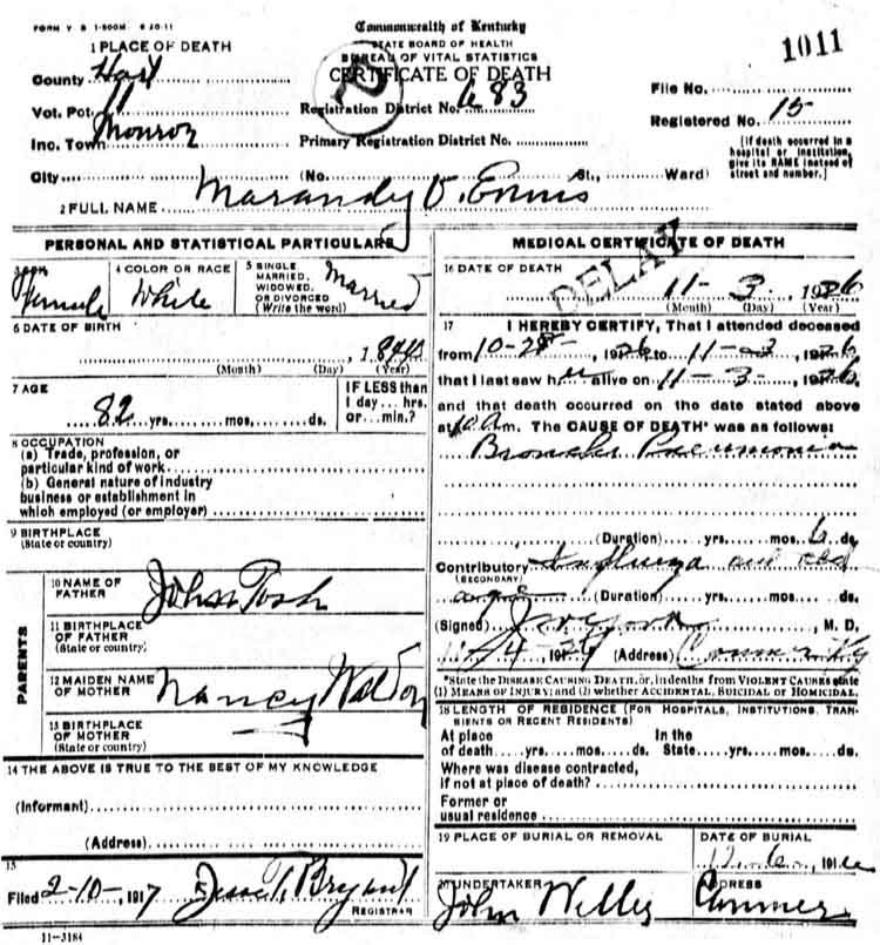 FORM V S 1-500M 6 20-11
Commonwealth of Kentucky
STATE BOARD OF HEALTH
BUREAU OF VITAL STATISTICS
CERTIFICATE OF DEATH
1011
1 PLACE OF DEATH
County Hart
Vot. Pct. 11
Registration District No. 683
File No.
Inc. Town Monroe
Primary Registration District No.
Registered No. 15
[If death occurred in a hospital or institution, give its NAME instead of street and number.]
City (No. St., Ward)
2 FULL NAME Marandy V. Ennis
PERSONAL AND STATISTICAL PARTICULARS
Female
4 COLOR OR RACE White
5 SINGLE, MARRIED, WIDOWED, OR DIVORCED (Write the word) Married
6 DATE OF BIRTH
(Month) (Day) (Year)
7 AGE
82 yrs. mos. ds.
IF LESS than 1 day ... hrs. or ... min.?
8 OCCUPATION
(a) Trade, profession, or
particular kind of work
(b) General nature of industry
business or establishment in
which employed (or employer)
9 BIRTHPLACE
(State or country)
PARENTS
10 NAME OF FATHER John Tosh
11 BIRTHPLACE OF FATHER
(State or country)
12 MAIDEN NAME OF MOTHER Nancy
13 BIRTHPLACE OF MOTHER
(State or country)
14 THE ABOVE IS TRUE TO THE BEST OF MY KNOWLEDGE
(Informant)
(Address)
15
Filed 2-10-, 1917 Bryant
REGISTRAR
11-3184
MEDICAL CERTIFICATE OF DEATH
DELAY
16 DATE OF DEATH
11- 3
(Month) (Day) (Year)
17 I HEREBY CERTIFY, That I attended deceased
from 10-28-, to 11-3,
that I last saw her alive on 11-3-,
and that death occurred on the date stated above
at m. The CAUSE OF DEATH* was as follows:
Bronchs Pneumonia
(Duration) yrs. mos. 6 ds.
Contributory Influenza and old
(SECONDARY)
age (Duration) yrs. mos. ds.
(Signed) M. D.
(Address)
*State the DISEASE CAUSING DEATH, or, in deaths from VIOLENT CAUSES state
(1) MEANS OF INJURY; and (2) whether ACCIDENTAL, SUICIDAL or HOMICIDAL.
18 LENGTH OF RESIDENCE (FOR HOSPITALS, INSTITUTIONS, TRANSIENTS OR RECENT RESIDENTS)
At place of death yrs. mos. ds. In the State yrs. mos. ds.
Where was disease contracted,
if not at place of death?
Former or
usual residence
19 PLACE OF BURIAL OR REMOVAL
DATE OF BURIAL
20 UNDERTAKER John Willis
ADDRESS